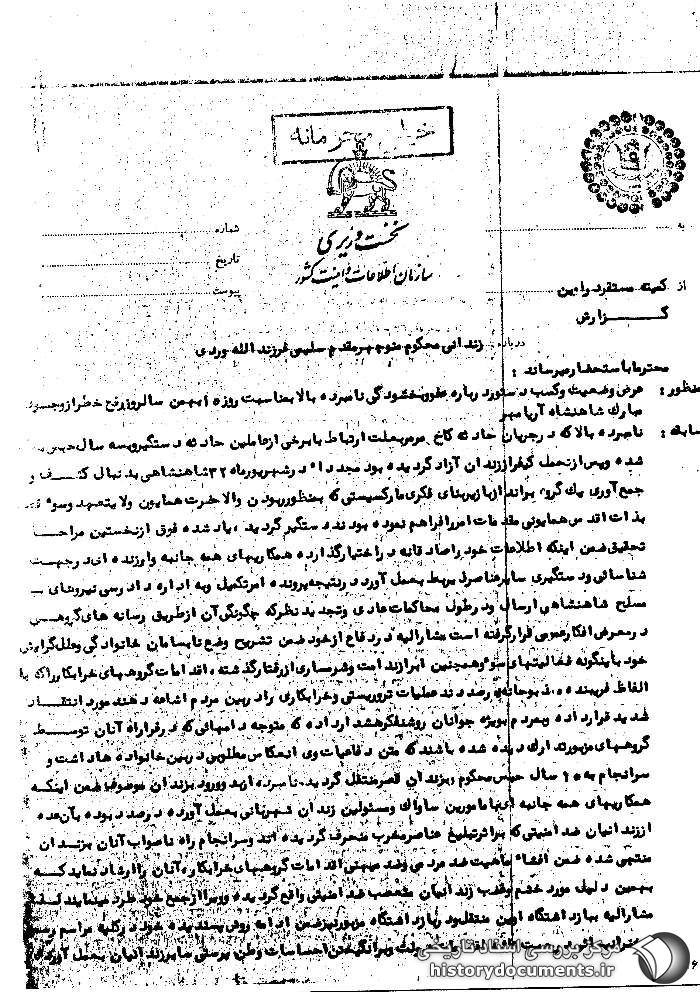 خیلی محرمانه
نخست وزیری
سازمان اطلاعات و امنیت کشور
شماره
تاریخ
پیوست
به
از کمیته مستقر در اوین
گـــــــزارش
درباره زندانی محکوم منوچهر مقدم سلیمی فرزند الله وردی
محترما باستحضار میرساند :
منظور : عرض وضعیت و کسب دستور درباره عفو و بخشودگی نامبرده بالا بمناسبت روز ۱۵ بهمن سالروز رفع خطر از وجود
مبارک شاهنشاه آریامهر
سابقه : نامبرده بالا که در جریان حادثه کاخ مرمر بعلت ارتباط با برخی از عاملین حادثه دستگیر و بسه سال حبس
شده و پس از تحمل کیفر از زندان آزاد گردیده بود مجددا در شهریورماه ۳۲ شاهنشاهی بدنبال کشف و
جمع آوری یک گروه برانداز با زیربنای فکری مارکسیستی که بمنظور ربودن والاحضرت همایون ولایتعهد و سوء
بذات اقدس همایونی مقدمات امر را فراهم نموده بودند دستگیر گردید ، یاد شده فوق از نخستین مراحل
تحقیق ضمن اینکه اطلاعات خود را صادقانه در اختیار گذارده همکاریهای همه جانبه و ارزنده ای در جهت
شناسائی و دستگیری سایر عناصر مربوط بعمل آورد در نتیجه پرونده امر تکمیل و به اداره دادرسی نیروهای
مسلح شاهنشاهی ارسال و در طول محاکمات عادی و تجدید نظر که چگونگی آن از طریق رسانه های گروهی
در معرض افکار عمومی قرار گرفته است مشارالیه در دفاع از خود ضمن تشریح وضع نابسامان خانوادگی و علل گرایش
خود باینگونه فعالیتهای سوء و همچنین ابراز ندامت و شرمساری از رفتار گذشته ، اقدامات گروههای خرابکار را که با
الفاظ فریبنده درصددند عملیات تروریستی و خرابکاری را در بین مردم اشاعه دهند مورد انتقاد
شدید قرار داده و بمردم بویژه جوانان روشنفکر هشدار داده که متوجه دامهائی که در فرا راه آنان توسط
گروههای مزبور تدارک دیده شده باشند که متن دفاعیات وی انعکاس مطلوبی در بین خانواده ها داشت و
سرانجام به ۱۵ سال حبس محکوم و بزندان قصر منتقل گردید. نامبرده از بدو ورود بزندان موصوف ضمن اینکه
همکاریهای همه جانبه ای با مامورین ساواک و مسئولین زندان شهربانی بعمل آورده درصدد بوده بآن عده
از زندانیان ضد امنیتی که بر اثر تبلیغ عناصر مخرب منحرف گردیده اند و سرانجام راه ناصواب آنان بزندان
منتهی شده ضمن افشاء ماهیت ضد مردمی و ضد میهنی اقدامات گروههای خرابکار ، آنان را ارشاد نماید که
بهمین دلیل مورد خشم و غضب زندانیان متعصب ضد امنیتی واقع گردیده و وی را از جمع خود طرد مینمایند
مشارالیه ببازداشتگاه اوین منتقل و در بازداشتگاه مزبور نیز ضمن ادامه روش پسندیده خود در کلیه مراسم
و برانگیختن احساسات وطن پرستی سایر زندانیان بعمل آورده
مرکز بررسی اسناد تاریخی
historydocuments.ir